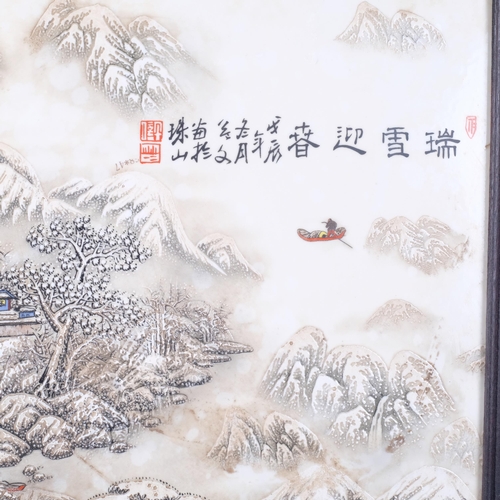 瑞雪迎春
戊辰
年
冬月
公文
畫於
珠山